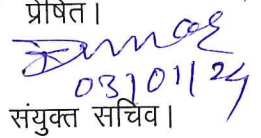 प्रेषित।
03/01/24
संयुक्त सचिव।